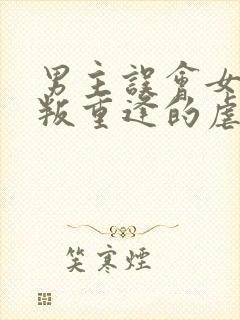 男主誤會女
叛重逢的虐
笑寒煙